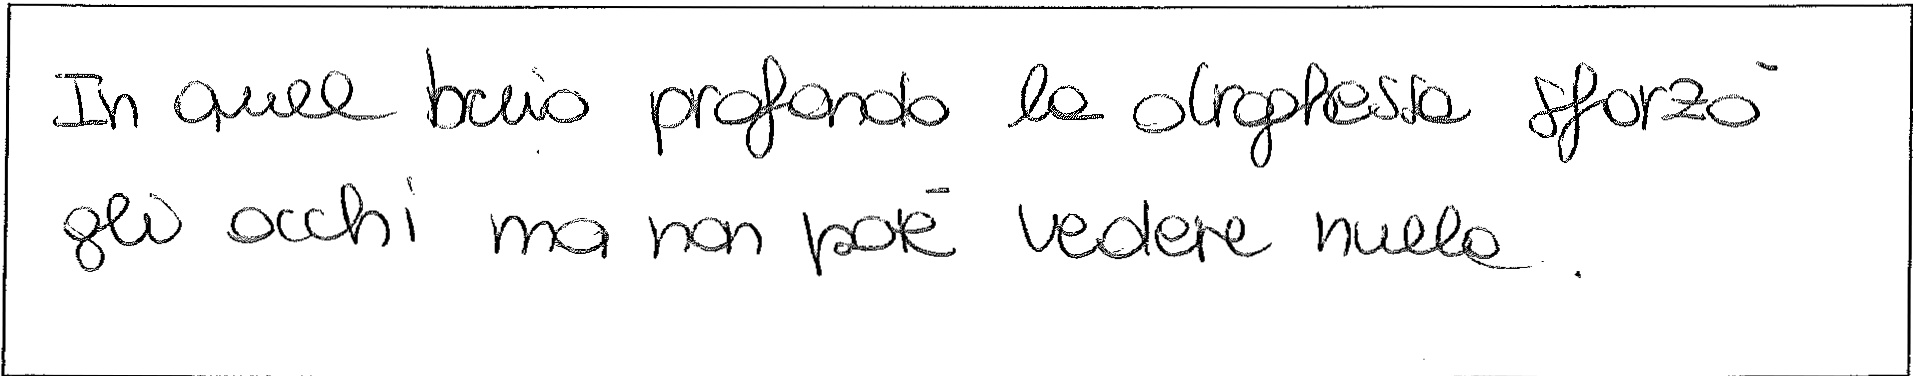 In quel buio profondo la draghessa sforzò
gli occhi ma non potè vedere nulla.